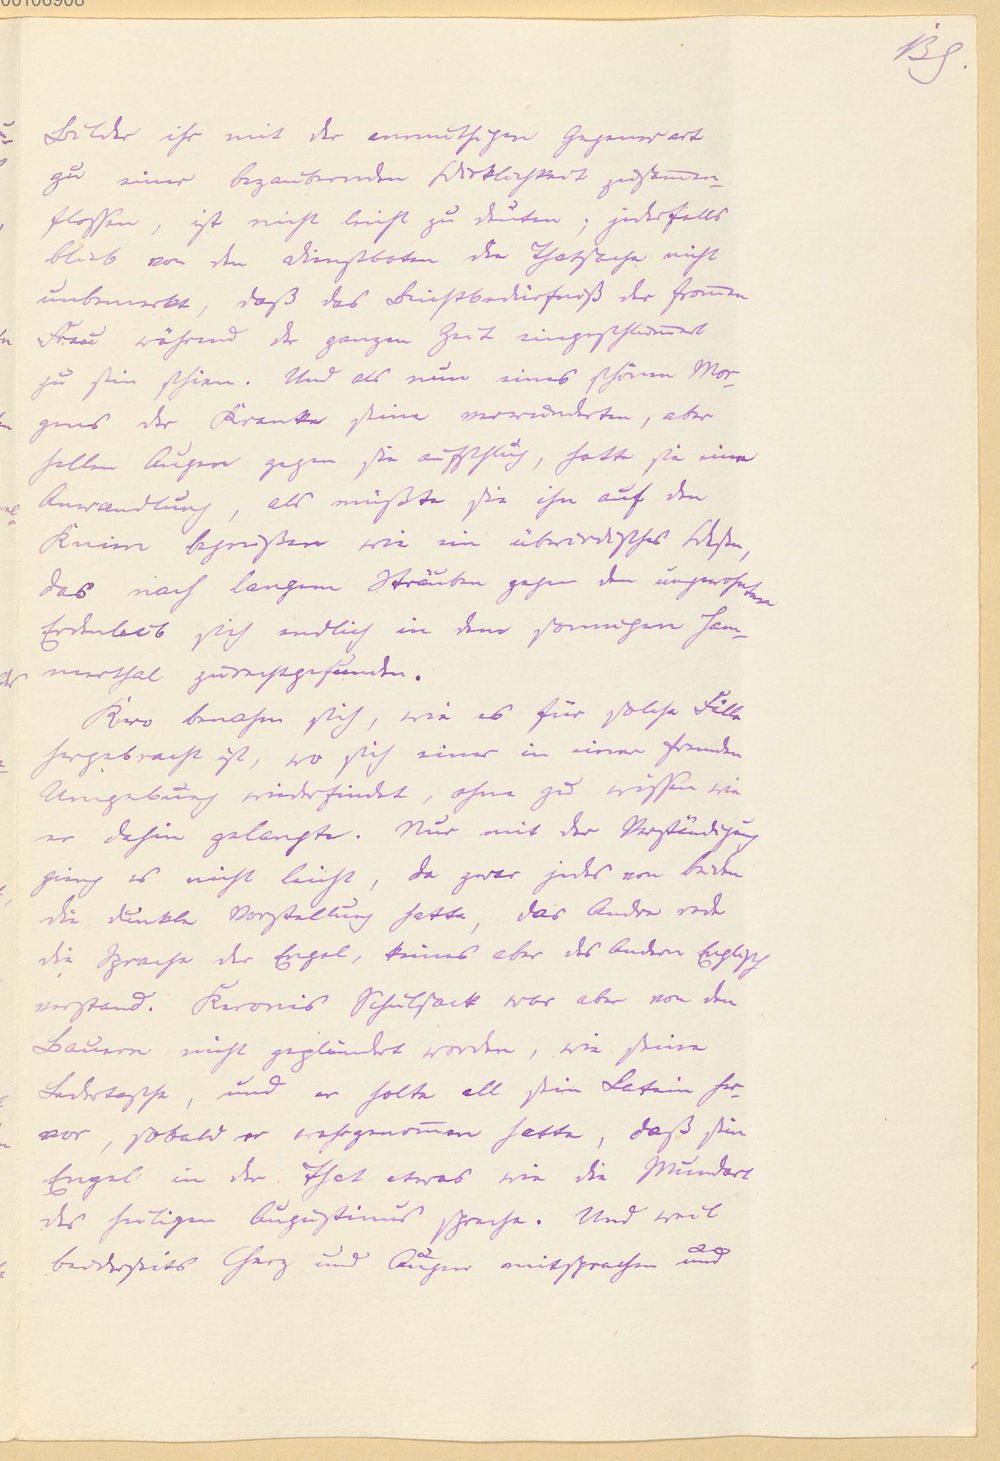 00106908
Bilder ihr mit der anmuthigen Gegenwart
zu einer bezaubernden Wirklichkeit zusam̅en-
flossen, ist nicht leicht zu deuten; jedesfalls
blieb von den Dienstboten die Thatsache nicht
unbemerkt, daß das Beichtbedürfniß der from̅en
Frau während der ganzen Zeit eingeschlum̅ert
zu sein schien. Und als nun eines schönen Mor-
gens der Kranke seine verwunderten, aber
hellen Augen gegen sie aufschlug, hatte sie eine
Anwandlung, als müßte sie ihn auf den
Knieen begrüßen wie ein überirdisches Wesen,
das nach langem Sträuben gegen den ungewohnten
Erdenleib sich endlich in dem sonnigen Jam-
merthal zurechtgefunden.
Kero benahm sich, wie es für solche Fälle
hergebracht ist, wo sich einer in einer fremden
Umgebung wiederfindet, ohne zu wissen wie
er dahin gelangte. Nur mit der Verständigung
gieng es nicht leicht, da zwar jedes von beiden
die dunkle Vorstellung hatte, das Andre rede
die Sprache der Engel, keines aber des Andern Englisch
verstand. Keronis Schulsack war aber von den
Bauern nicht geplündert worden, wie seine
Ledertasche, und er holte all sein Latein her-
vor, sobald er wahrgenom̅en hatte, daß sein
Engel in der That etwas wie die Mundart
des heiligen Augustinus spreche. Und weil
beiderseits Herz und Augen mitsprachen und